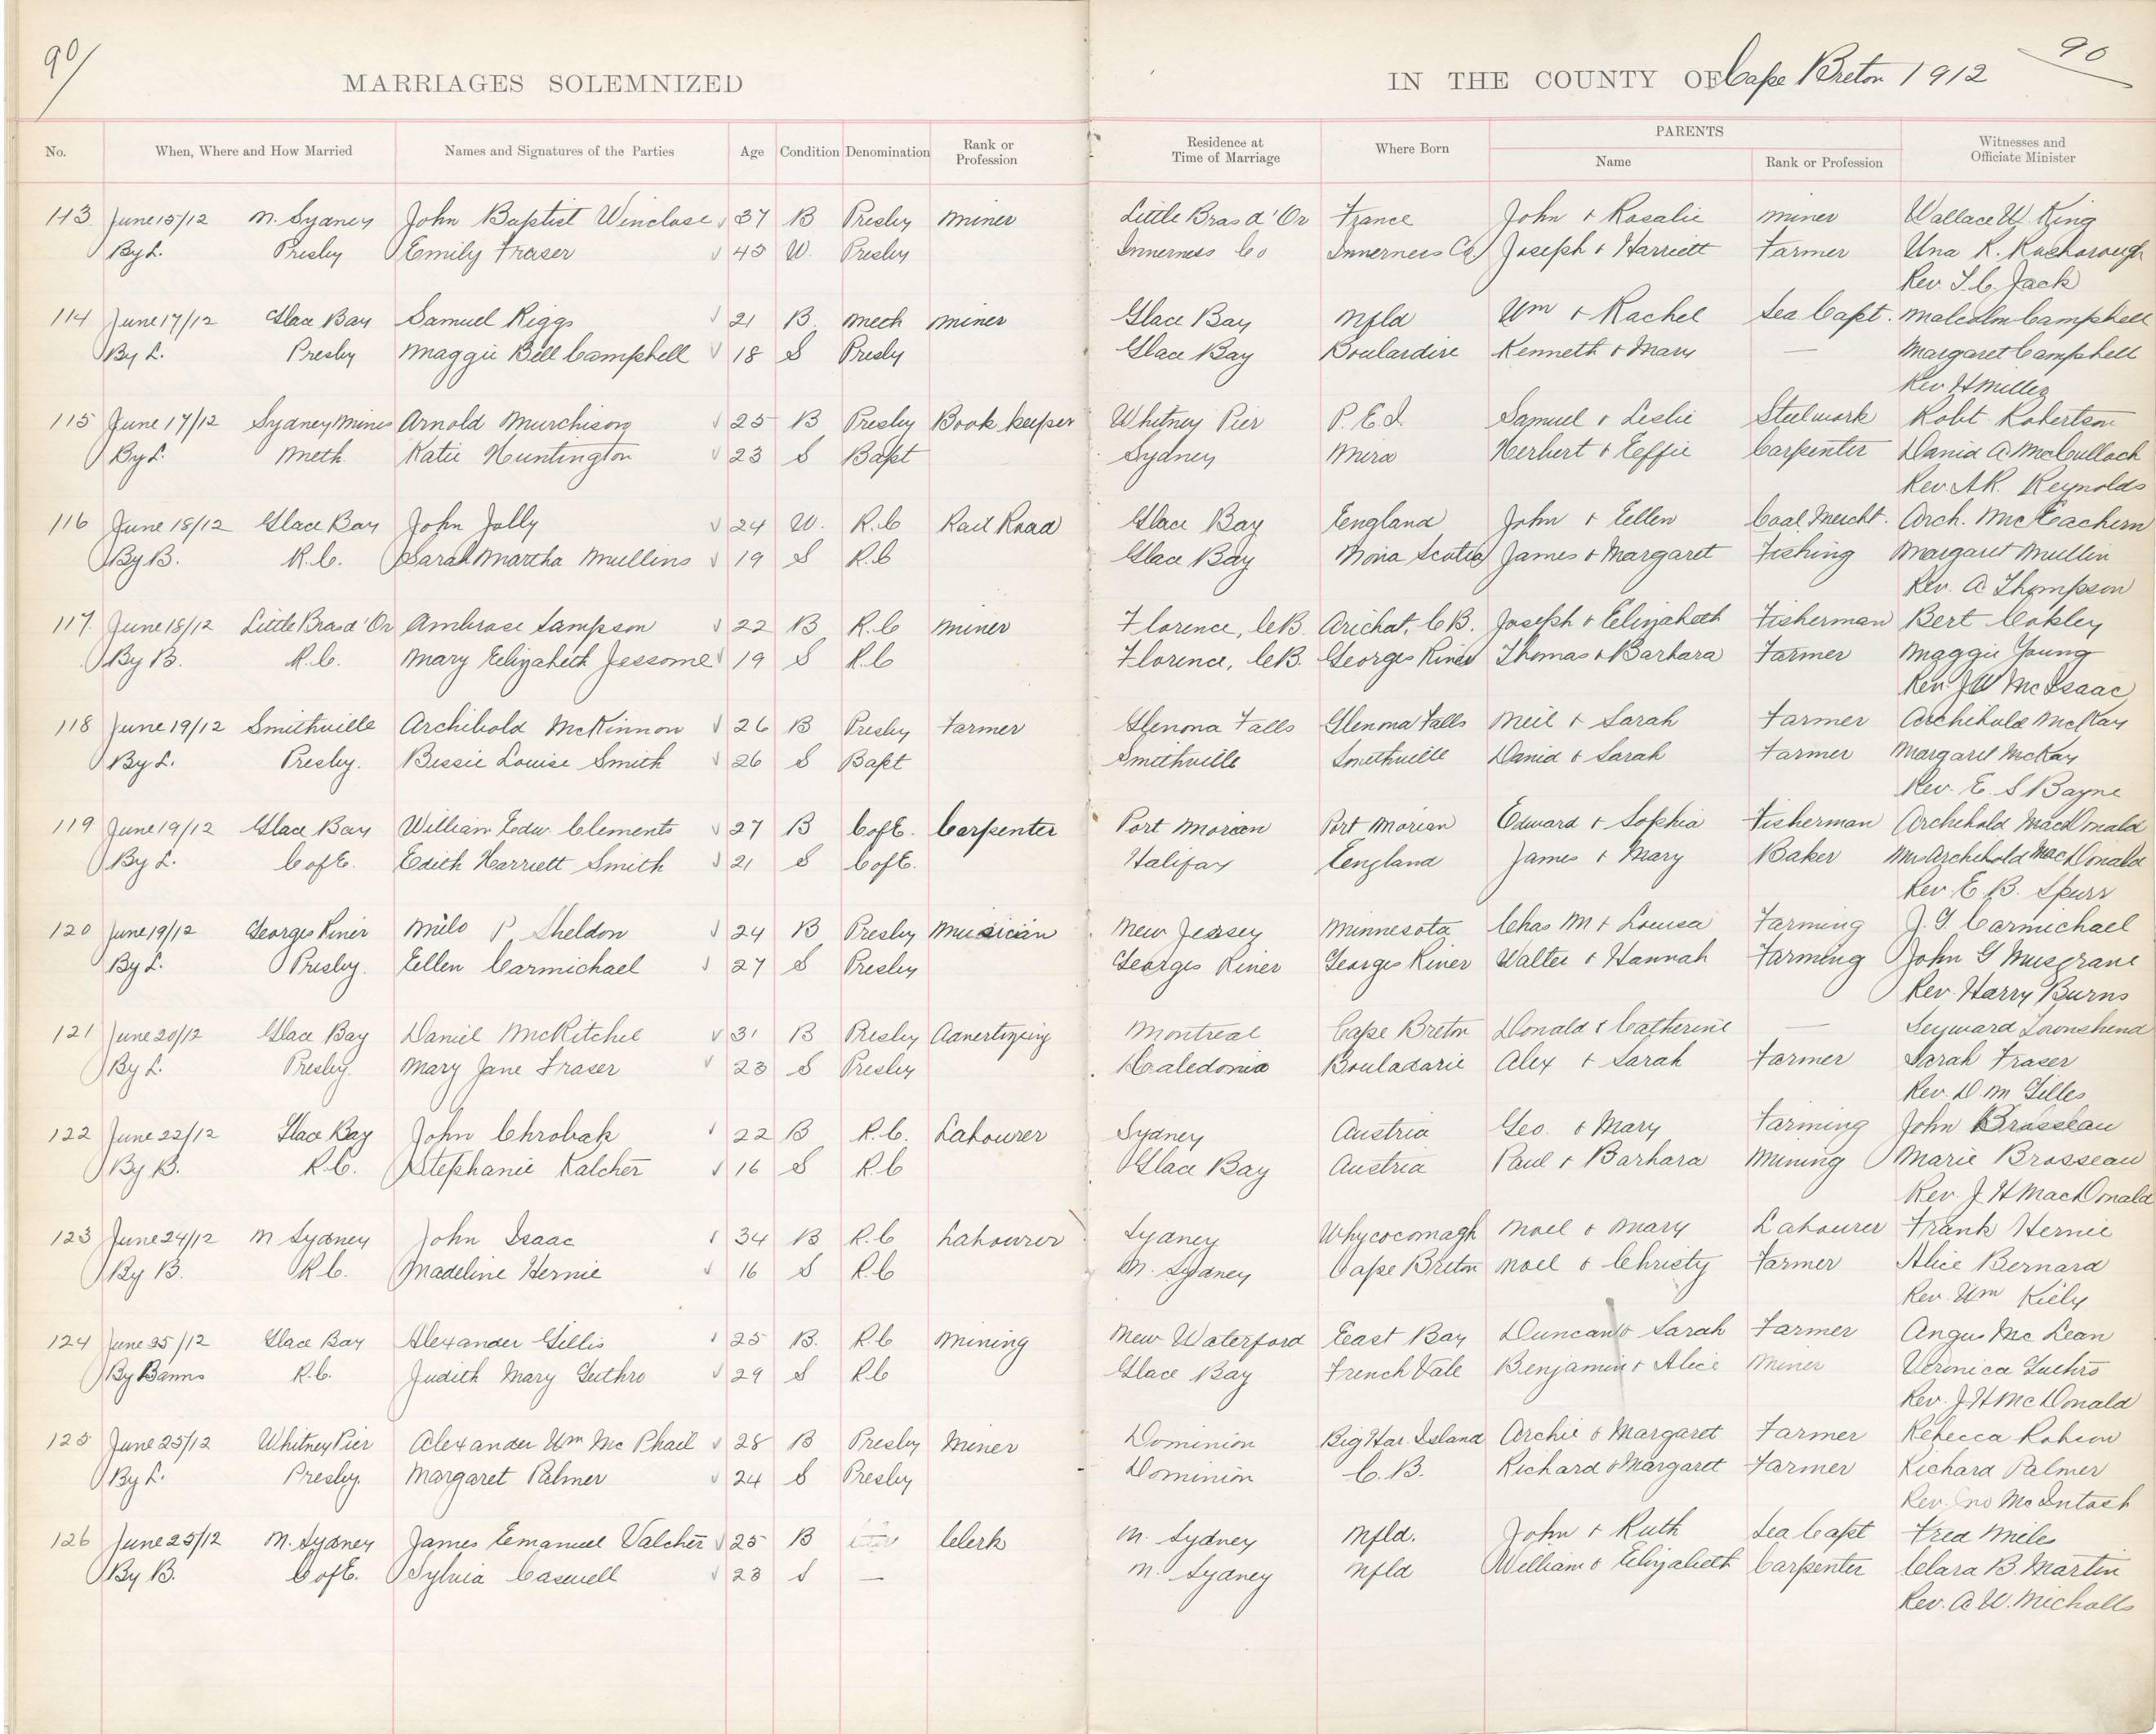 90/
90
MARRIAGES SOLEMNIZED IN THE COUNTY OF Cape Breton 1912
PARENTS
No. When, Where and How Married Names and Signatures of the Parties Age Condition Denomination Rank or Profession Residence at Time of Marriage Where Born Name Rank or Profession Witnesses and Officiate Minister
113 June 15/12 N. Sydney John Baptist Winclose 37 B Presby Miner Little Bras d'Or France John & Rosalie Miner Wallace W. King
By L. Presby Emily Fraser 43 W. Presby Inverness Co Inverness Co Joseph & Harriett Farmer Una R.
Rev T. C. Jack
114 June 17/12 Glace Bay Samuel Riggs 21 B Meth Miner Glace Bay Nfld Wm & Rachel Sea Capt. Malcolm Campbell
By L. Presby Maggie Bell Campbell 18 S Presby Glace Bay Boulardire Kenneth & Mary — Margaret Campbell
Rev H Miller
115 June 17/12 Sydney Mines Arnold Murchison 25 B Presby Book keeper Whitney Pier P.E.I. Samuel & Leslie Steelwork Robt. Robertson
By L. Meth. Katie Huntington 23 S Bapt Sydney Mira Herbert & Effie Carpenter David A McCulloch
Rev. A.R. Reynolds
116 June 18/12 Glace Bay John Jolly 24 W. R.C Rail Road Glace Bay England John & Ellen Coal Mercht. Arch. McEachern
By B. R.C. Sarah Martha Mullins 19 S R.C Glace Bay Nova Scotia James & Margaret Fishing Margaret Mullin
Rev. A Thompson
117 June 18/12 Little Bras d'Or Ambrose Sampson 22 B R.C Miner Florence, C.B. Arichat, C.B. Joseph & Elizabeth Fisherman Bert Coakley
By B. R.C. Mary Elizabeth Jessome 19 S R.C Florence, C.B. Georges River Thomas & Barbara Farmer Maggie Young
Rev. J W McIsaac
118 June 19/12 Smithville Archibold McKinnon 26 B Presby Farmer Glenona Falls Glenona Falls Neil & Sarah Farmer Archibald McKay
By L. Presby. Bessie Louise Smith 26 S Bapt Smithville Smithville David & Sarah Farmer Margaret McKay
Rev. E. S Bayne
119 June 19/12 Glace Bay William Edw. Clements 27 B C of E. Carpenter Port Morien Port Morien Edward & Sophia Fisherman Archibald MacDonald
By L. C of E. Edith Harriett Smith 21 S C of E. Halifax England James & Mary Baker Mrs Archibald MacDonald
Rev. E. B. Spurr
120 June 19/12 Georges River Milo P Sheldon 24 B Presby Musician New Jersey Minnesota Chas M & Louisa Farming J. G. Carmichael
By L. Presby. Ellen Carmichael 27 S Presby Georges River Georges River Walter & Hannah Farming John G Musgrave
Rev. Harry Burns
121 June 20/12 Glace Bay Daniel McRitchie 31 B Presby Advertizing Montreal Cape Breton Donald & Catherine — Seyward Townshend
By L. Presby. Mary Jane Fraser 23 S Presby Caledonia Bouladarie Alex & Sarah Farmer Sarah Fraser
Rev. D. M Gilles
122 June 22/12 Glace Bay John Chrobak 22 B R.C. Labourer Sydney Austria Geo. & Mary Farming John Brosseau
By B. R.C. Stephanie Kalcher 16 S R.C Glace Bay Austria Paul & Barbara Mining Marie Brosseau
Rev. J. H MacDonald
123 June 24/12 N Sydney John Isaac 34 B R.C Labourer Sydney Whycocomagh Noel & Mary Labourer Frank Hernie
By B. R.C. Madeline Hernie 16 S R.C N. Sydney Cape Breton Noel & Christy Farmer Alice Bernard
Rev. Wm Kiely
124 June 25/12 Glace Bay Alexander Gillis 25 B. R.C Mining New Waterford East Bay Duncan & Sarah Farmer Angus Mc Lean
By Banns R.C. Judith Mary Guthro 29 S R.C Glace Bay French Vale Benjamin & Alice Miner Veronica Guthro
Rev. J. H McDonald
125 June 25/12 Whitney Pier Alexander Wm Mc Phail 28 B Presby Miner Dominion Big Har. Island Archie & Margaret Farmer Rebecca Robson
By L. Presby. Margaret Palmer 24 S Presby Dominion C. B. Richard & Margaret Farmer Richard Palmer
Rev. Jno McIntosh
126 June 25/12 N. Sydney James Emanuel Valcher 25 B Clerk N. Sydney Nfld. John & Ruth Sea Capt Fred Miles
By B. C of E. Sylvia Caswell 23 S — N. Sydney Nfld William & Elizabeth Carpenter Clara B. Martin
Rev. A. W. Nicholls